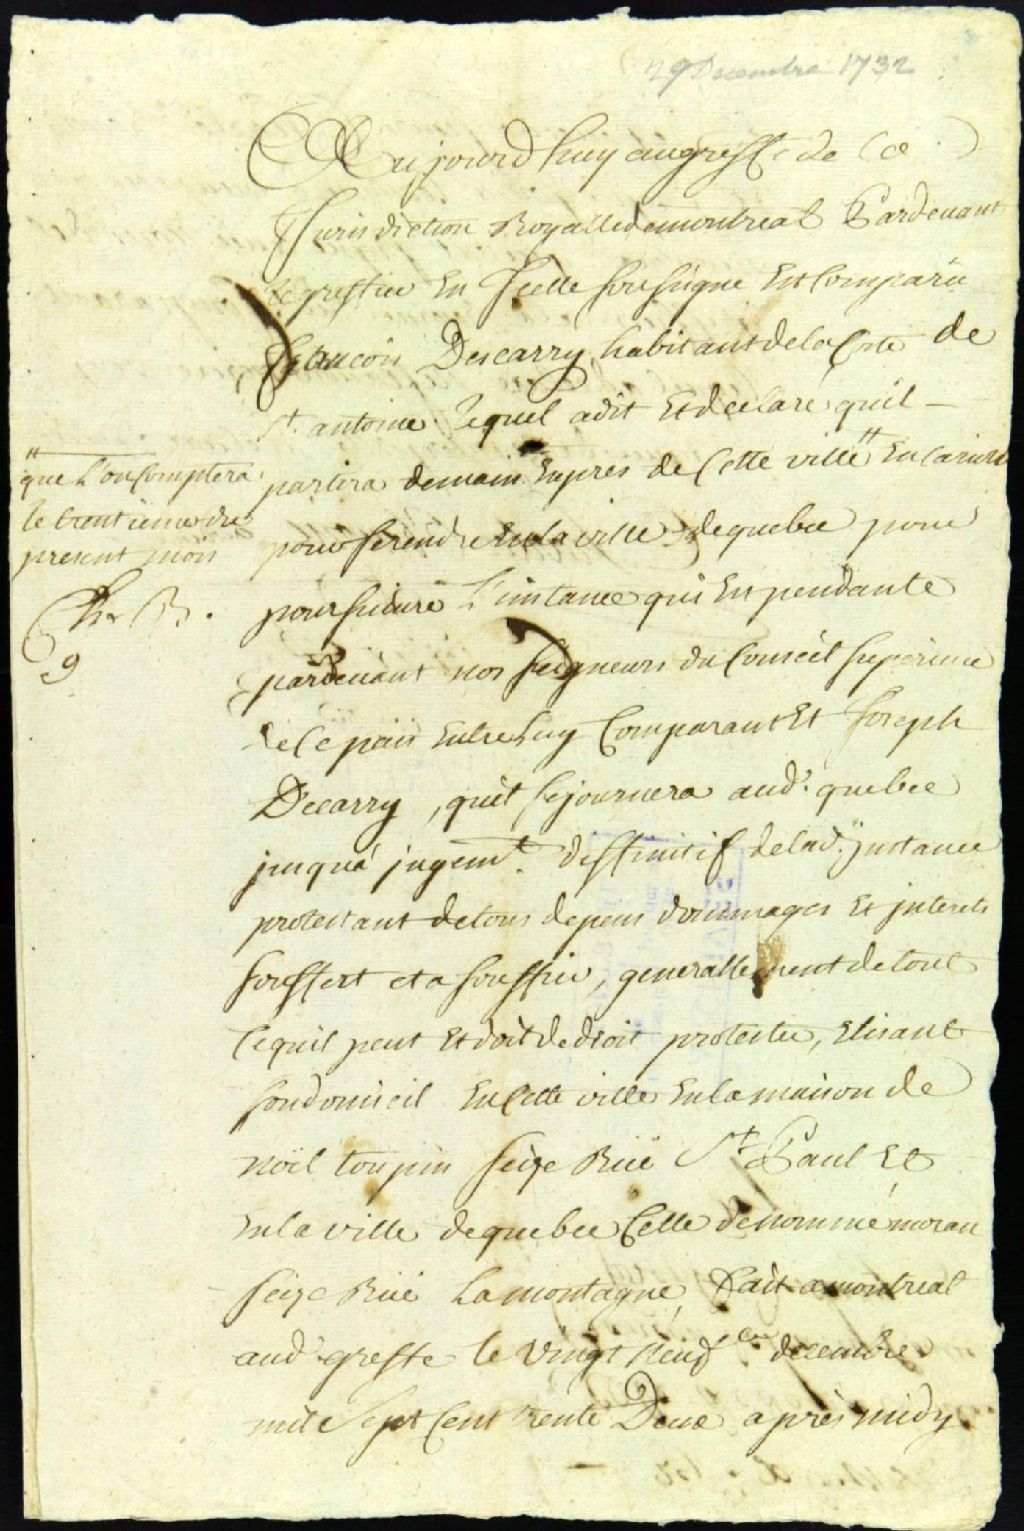 29 Decembre 1732
Aujourdhuy au greffe de la
Jurisdiction Royalle de montreal Pardevant
le greffier En Icelle soussigné Est Comparu
francois Descarry habitant de la Coste de
St. antoine lequel a dit Et declaré quil
partira demain Expres de Cette ville " En Cariole
pour se rendre En la ville de quebec pour
poursuivre L'instance qui Est pendante
pardevant nos seigneurs du Conseil superieur
de Ce pais Entre luy Comparant Et Joseph
Decarry, quil sejournera aud. quebec
jusqua jugemt. deffinitif de lad. Jnstance
protestant de tous depens dommages Et jnterets
souffert et a souffrir, generallement de tout
Ce quil peut Et doit de droit protester, Elisant
son domicil En Cette ville En la maison de
noël toupin seize Rüe St. Paul Et
En la ville de quebec Celle de nommé moran
seize Rüe La montagne, fait a montreal
aud. greffe le vingt neufe. decembre
mile sept Cent trente Deux apres midy
" que L'on Comptera
le trentieme du
present mois